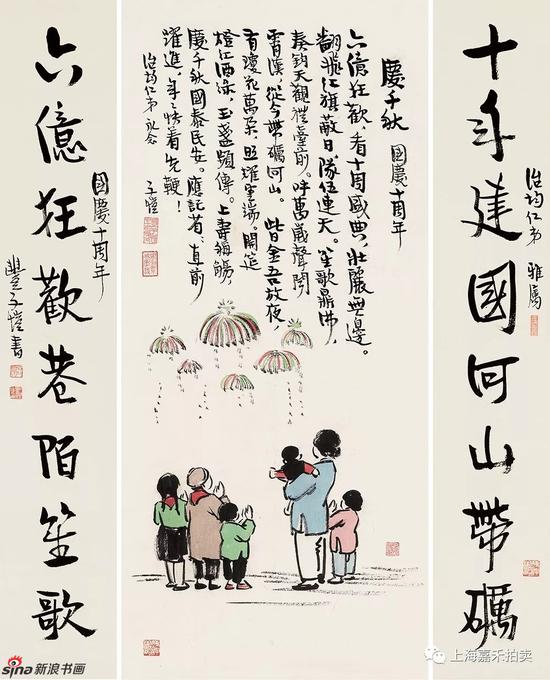 十年建國河山帶礪
治均仁弟 雅屬
慶千秋 國慶十周年
六億狂歡,看十周盛典,壯麗無邊。
翻飛紅旗蔽日,隊伍連天。笙歌鼎沸,
奏鈞天觀禮臺前。呼萬歲聲聞
霄漢,從今帶礪河山。 此日金吾放夜,
有瓊花萬朵,照耀雲端。開筵
燈紅酒綠,玉盞頻傳。上壽稱觴,
慶千秋國泰民安。應記省:直前
躍進,年年快着先鞭!
治均仁弟 永念 子愷
六億狂歡巷陌笙歌
國慶十周年
豐子愷書
sina新浪书画
上海嘉禾拍卖